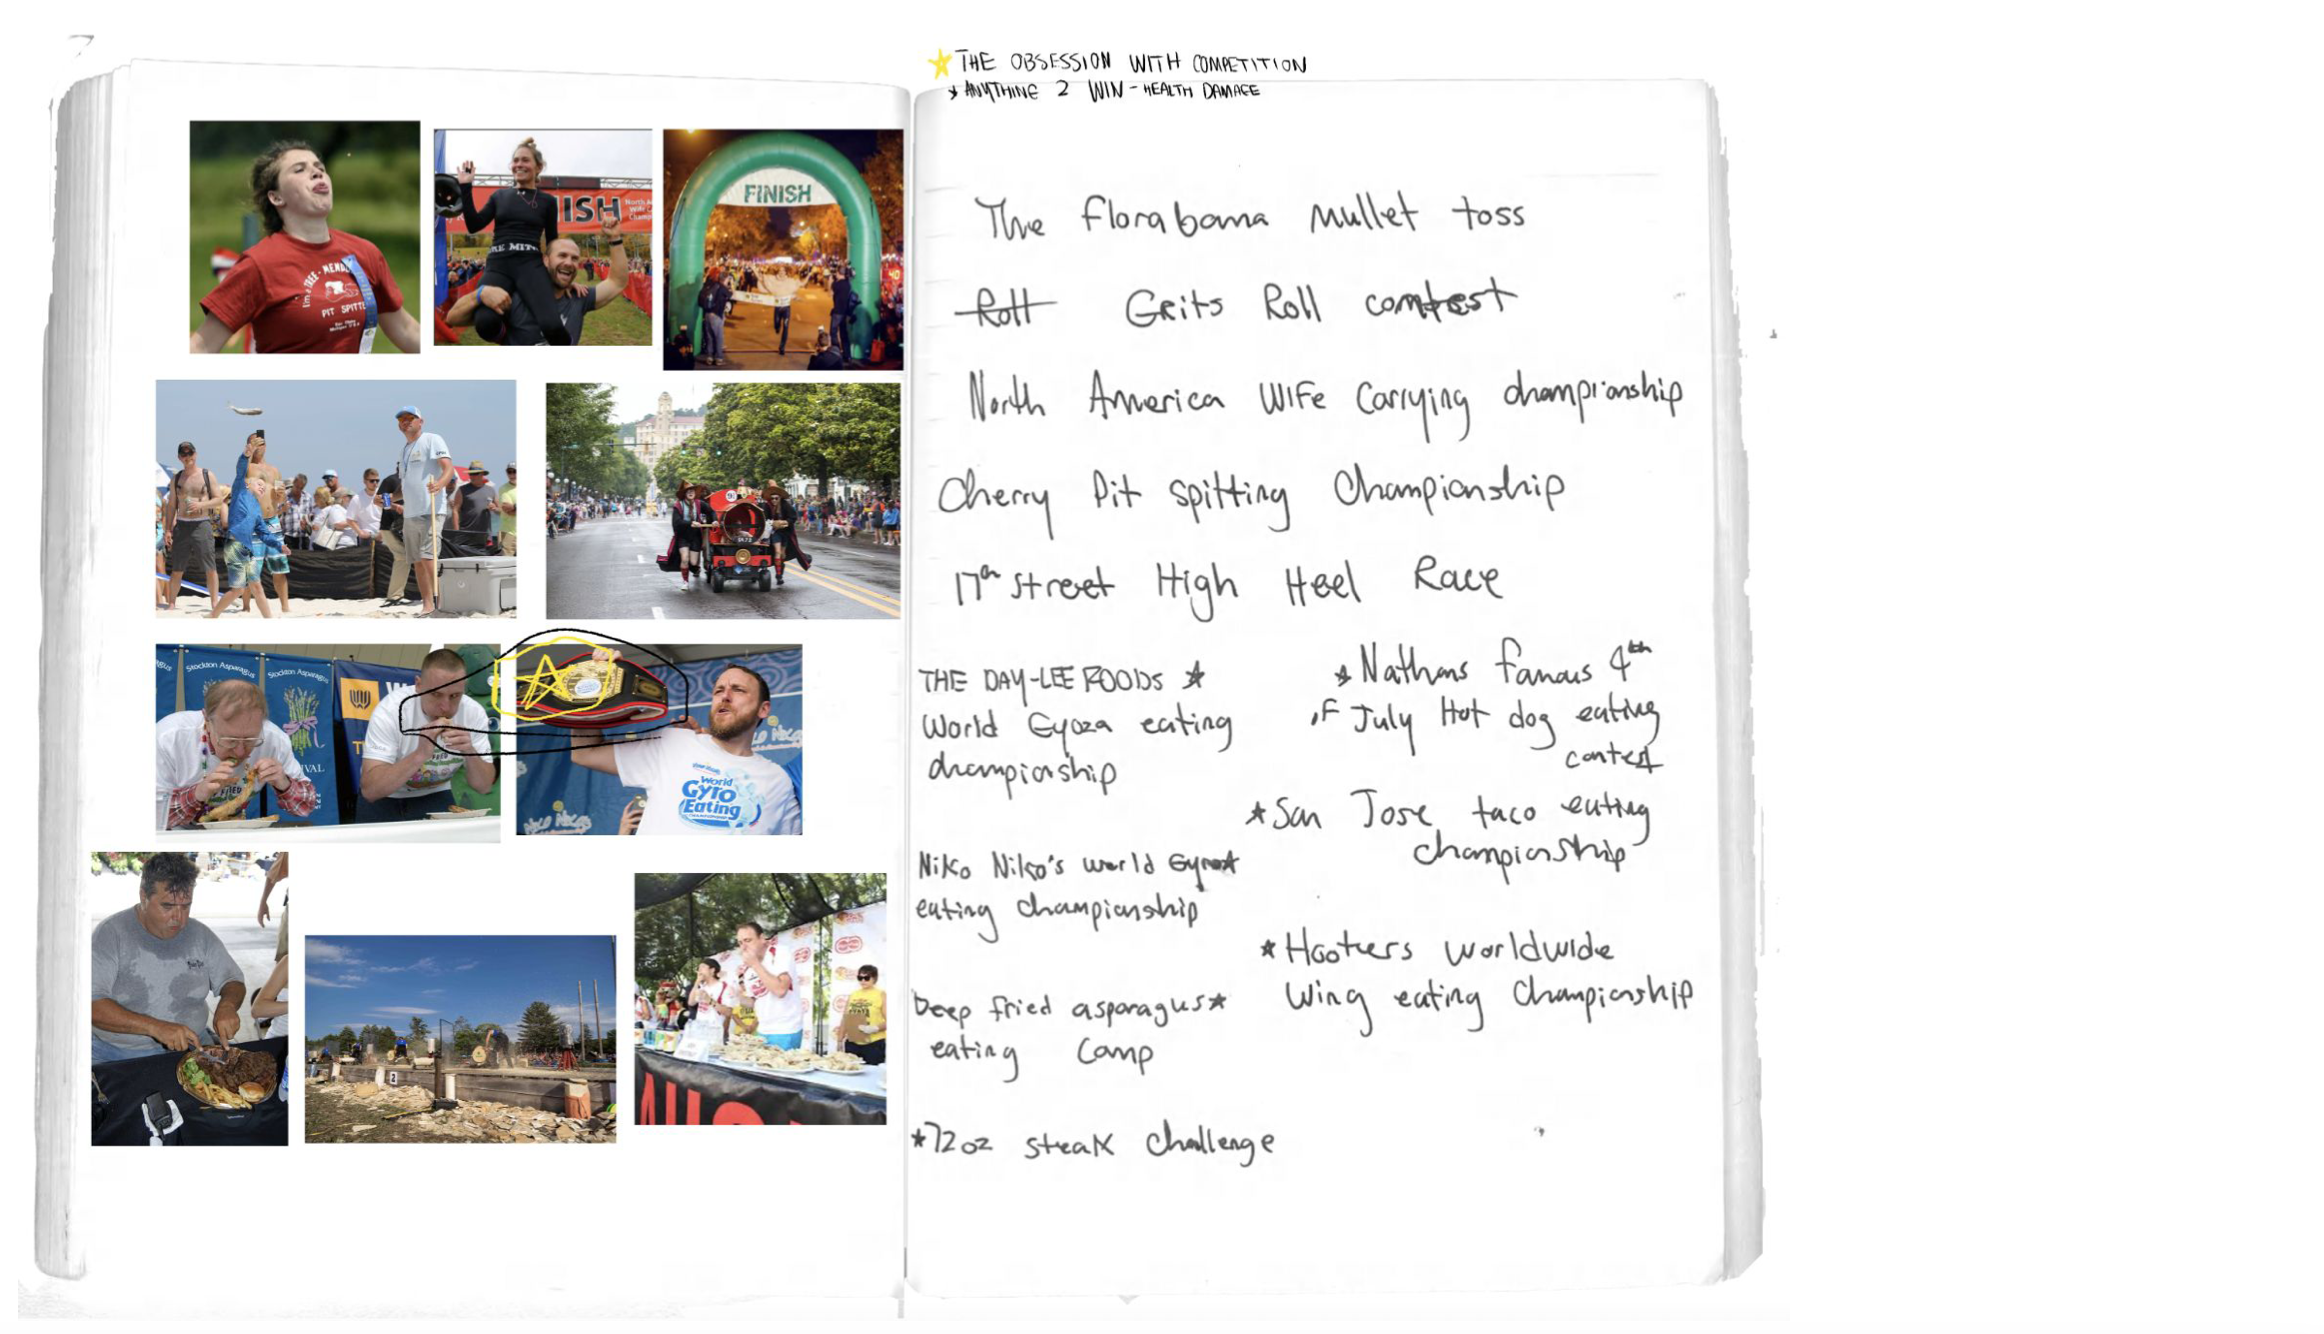 THE OBSESSION WITH COMPETITION
ANYTHING 2 WIN - HEALTH DAMAGE
PIT SPITTI
ISH
FINISH
The Florabama Mullet toss
Roll Grits Roll contest
North America Wife Carrying championship
Cherry Pit Spitting Championship
17th Street High Heel Race
THE DAY-LEE FOODS
World Gyoza eating
championship
Nathans famous 4th
of July Hot dog eating
contest
San Jose taco eating
championship
Niko Niko's world Gyro
eating championship
Hooters worldwide
Wing eating Championship
Deep fried asparagus
eating Comp
72oz steak challenge
Stockton Asparagus
Stockton Asparagus
World
Gyro
Eating